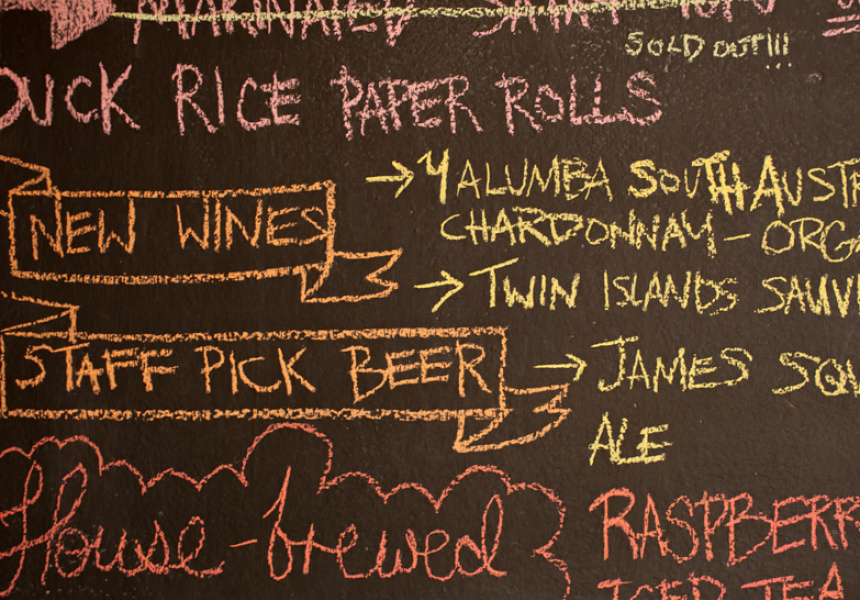 MARINATED
SOLD OUT!!!
DUCK RICE PAPER ROLLS
NEW WINES
→ YALUMBA SOUTH AUST
CHARDONNAY - ORGA
→ TWIN ISLANDS SAUVI
STAFF PICK BEER
→ JAMES SQU
ALE
House-brewed
RASPBERR
ICED TEA